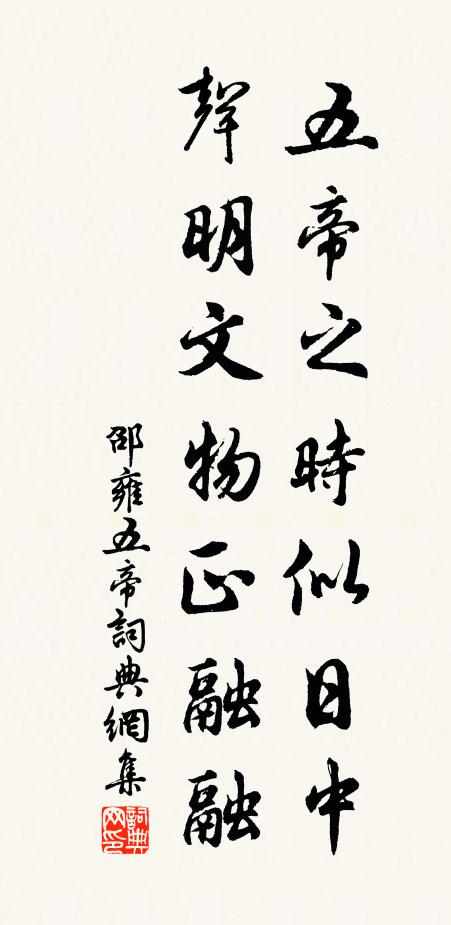 五帝之時似日中
聲明文物正融融
邵雍五帝詞典網集
詞典网印